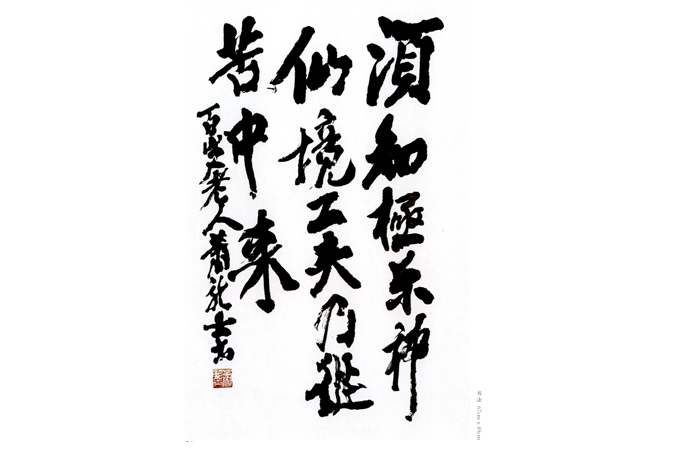 須知極樂神
仙境工夫乃從
苦中來
百歲老人蕭龍士書
书法 65cm x 43cm